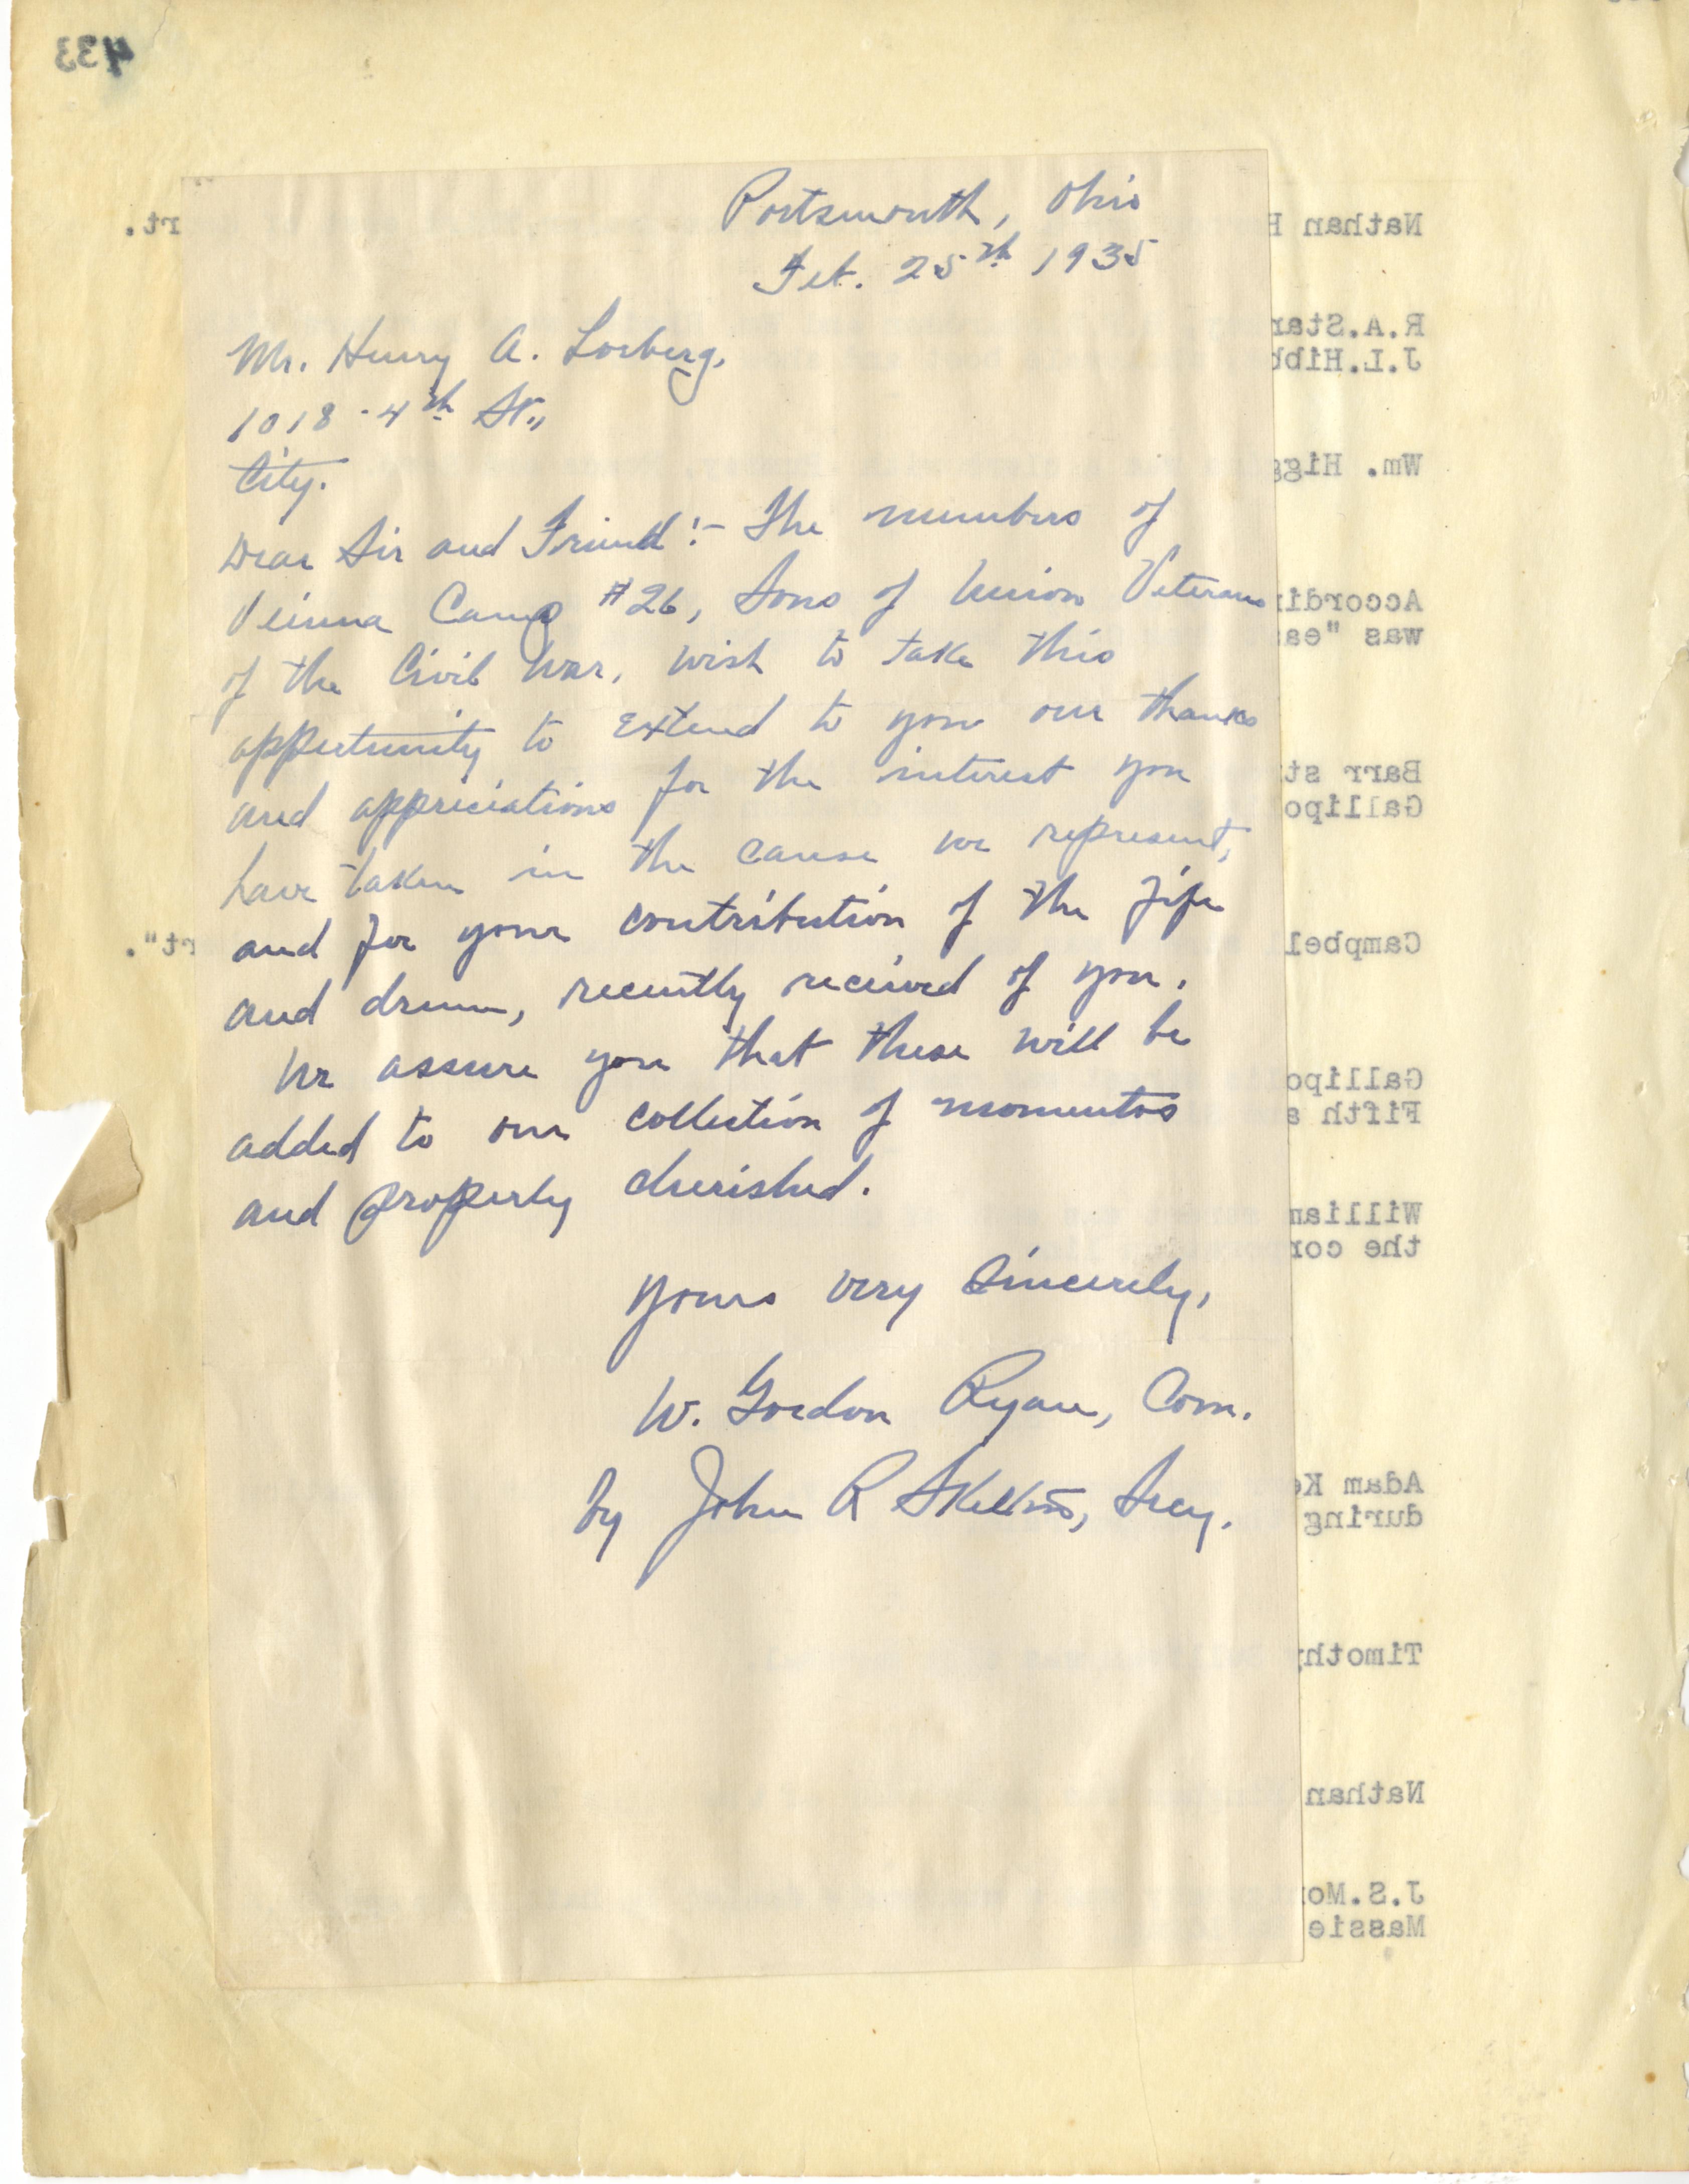 433
Portsmouth, Ohio
Feb. 25th 1935
Mr. Henry A. Lorberg,
1018 - 4th St.,
City.
Dear Sir and Friend:- The members of
Vienna Camp #26, Sons of Union Veterans
of the Civil War, wish to take this
oppertunity to extend to you our thanks
and appreciations for the interest you
have taken in the cause we represent,
and for your contribution of the fife
and drum, recently received of you.
We assure you that these will be
added to our collection of momentos
and properly cherished.
Yours very sincerely,
W. Gordon Ryan, Com.
By John R Skelton, Secy.
rt.
Nathan H
R.A.Star
J.L.Hibb
Wm. Higg
Accordin
was "eas
Barr st
Gallipo
rt".
Campbell
Gallipo
Fifth a
William
the cor
Adam Ke
during
Timothy
Nathan
J.S.Mo
Massie